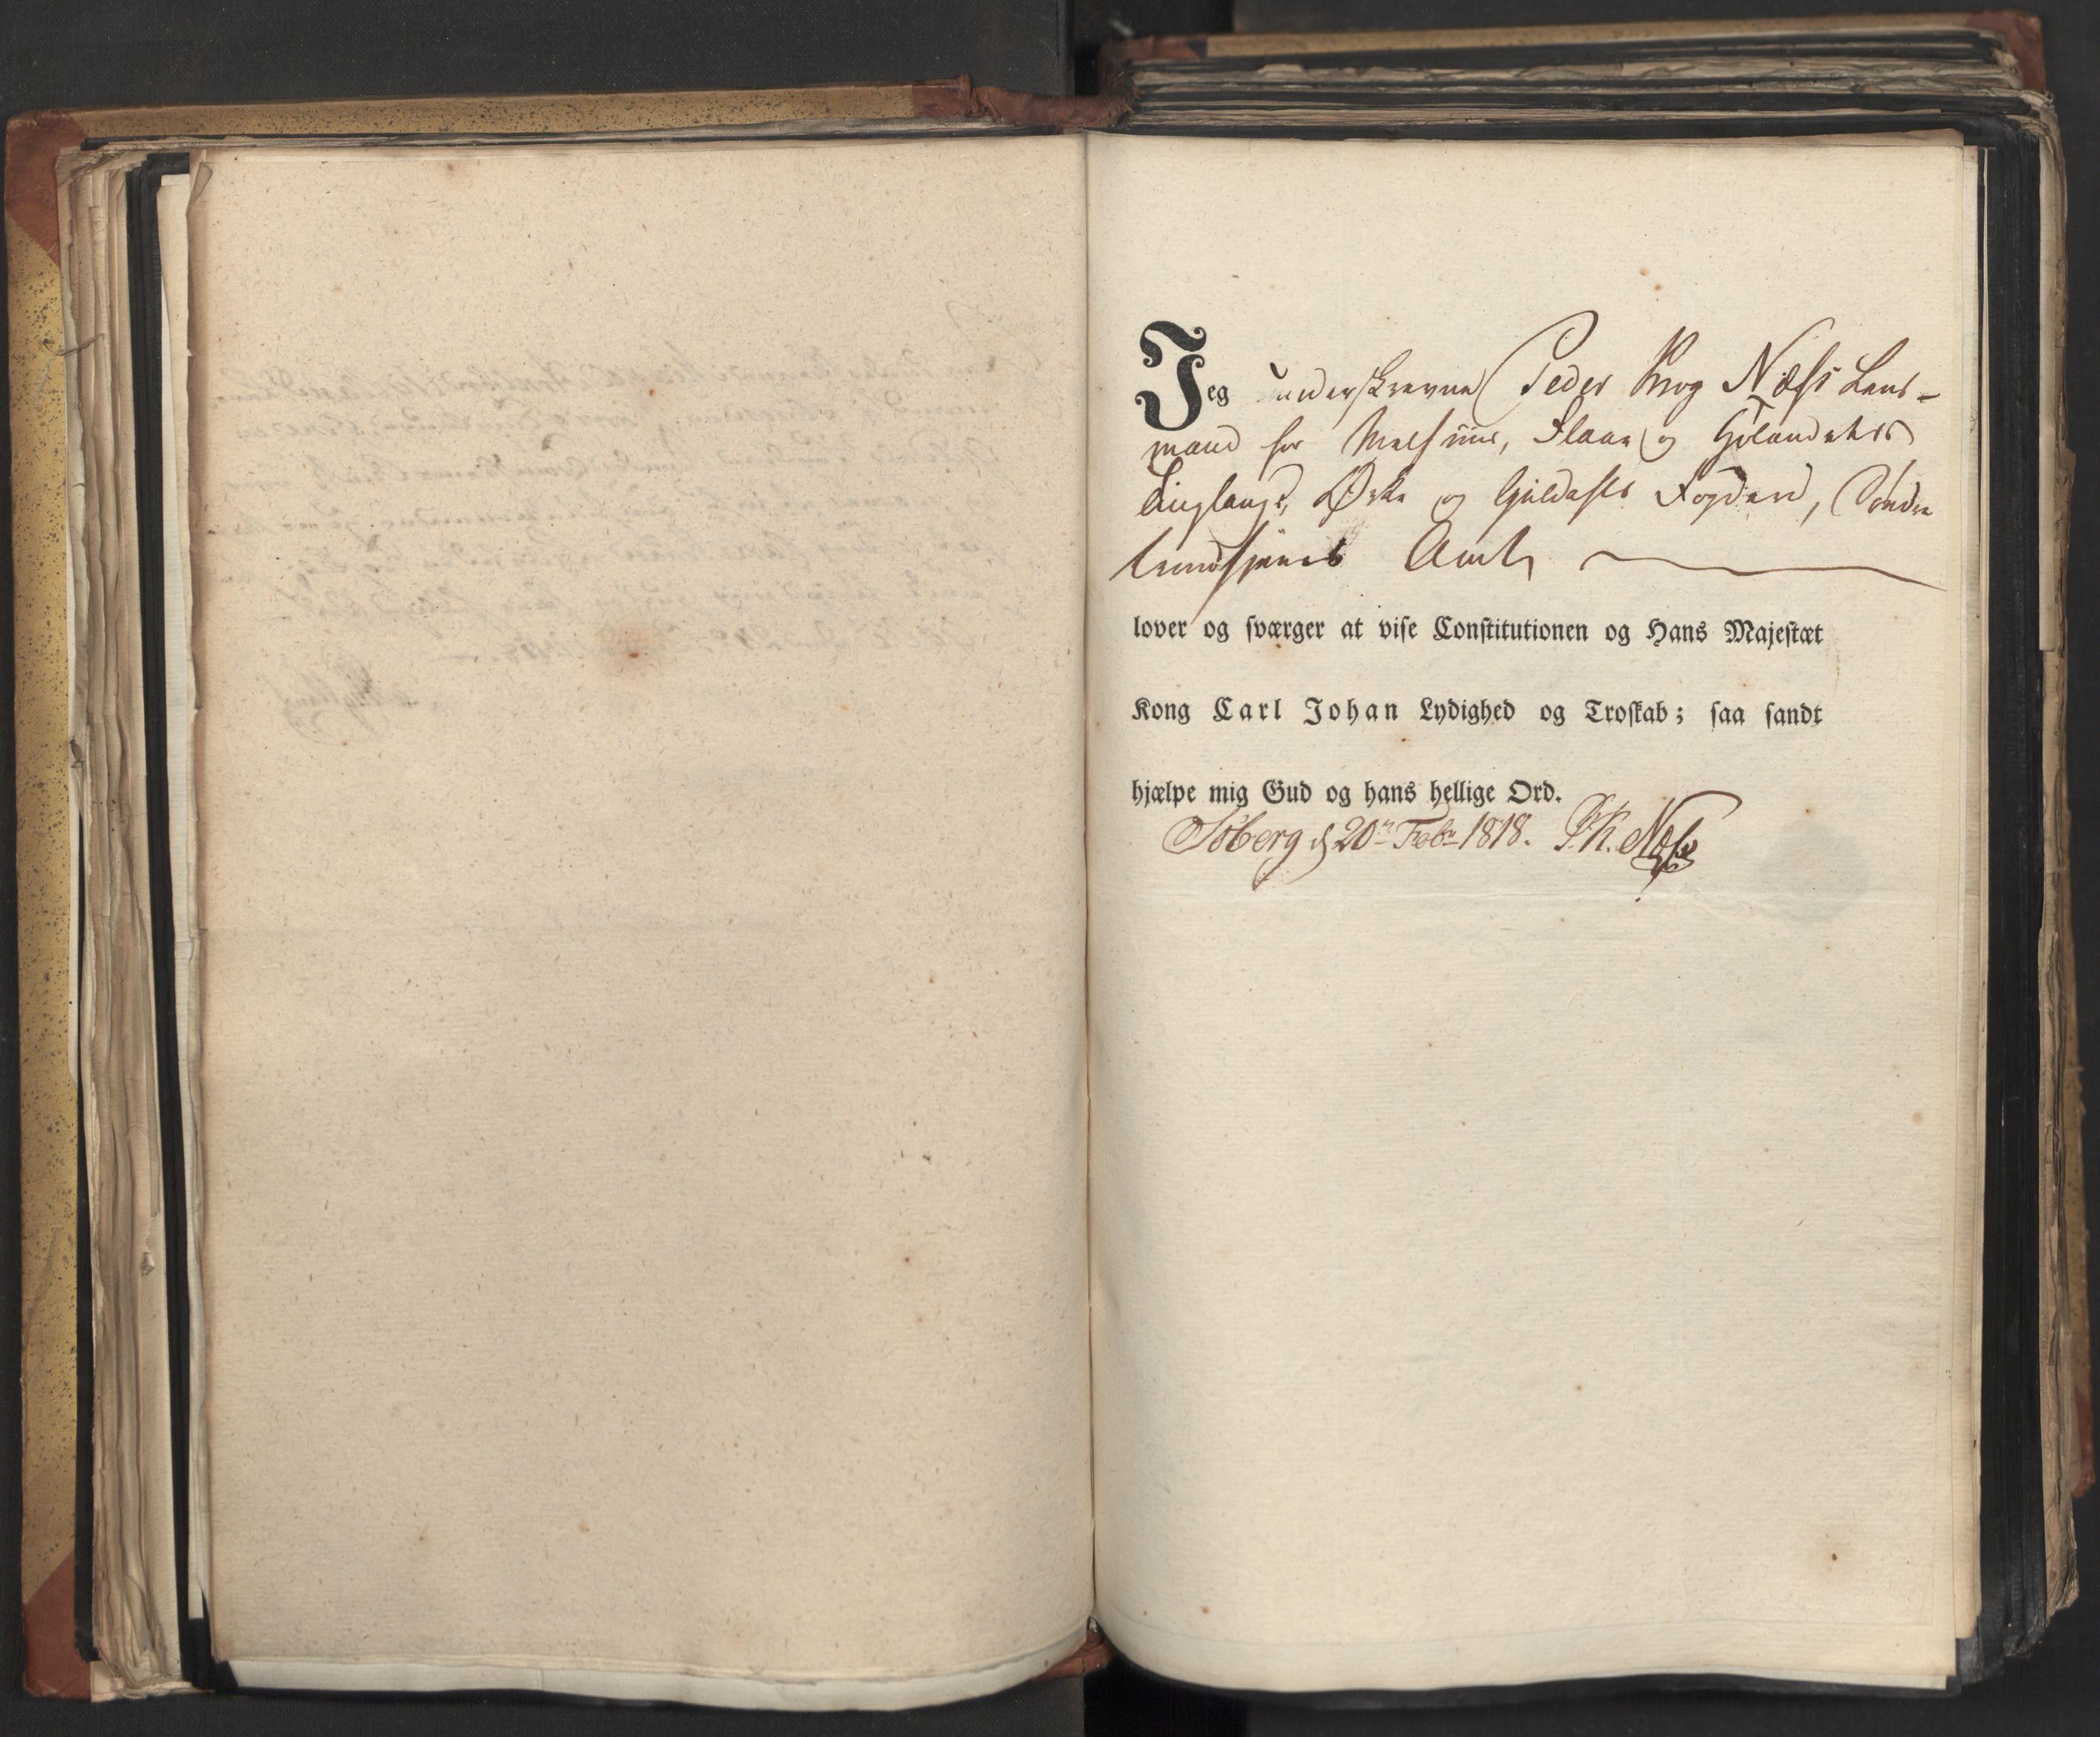 Jeg underskrevne Peder Krog Næss Lens-
mand for Melhuus, Flaae og Hølandets
Tinglaug, Ørke og Guldahls Fogderi, Søndre
Trondhjems Amt
lover og sværger at vise Constitutionen og Hans Majestæt
Kong Carl Johan Lydighed og Troskab; saa sandt
hjælpe mig Gud og hans hellige Ord.
Søberg d 20n Febr 1818. P.K. Næss